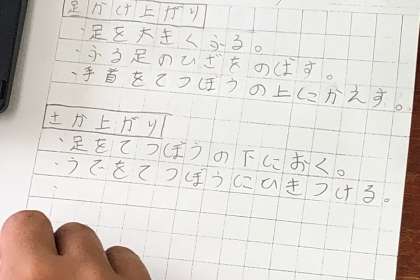 足かけ上がり
・足を大きくふる。
・ふる足のひざをのばす。
・手首をてつぼうの上にかえす。
さか上がり
・足をてつぼうの下におく。
・うでをてつぼうにひきつける。
・